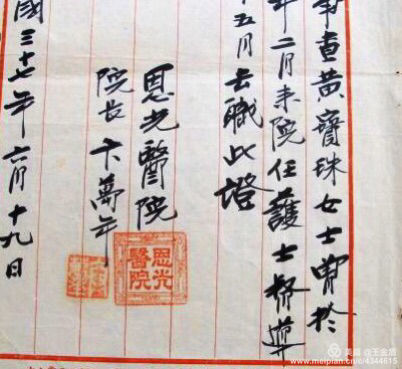 查黃寶珠女士曾於
年二月来院任護士督導
五月去職此證
恩光醫院
院長 卞萬年
國三十七年六月十九日
恩光
醫院
美篇 @王金盾
www.meipian.cn/c/4344615